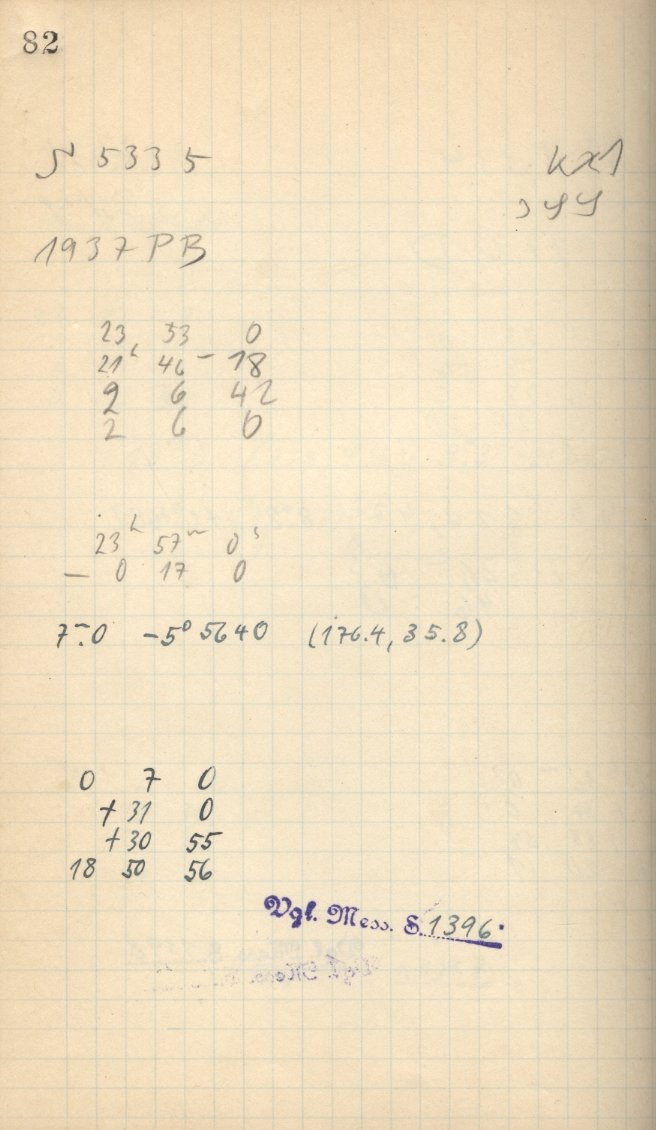 82
5335
1937 PB
23 33 0
21ʰ 46ᵐ 18
2 6 42
2 6 0
23ʰ 57ᵐ 0ˢ
— 0 17 0
7ᵐ.0 -5° 56 40 (176.4, 35.8)
0 7 0
+31 0
+30 55
18 50 56
Vgl. Mess. S. 1396.